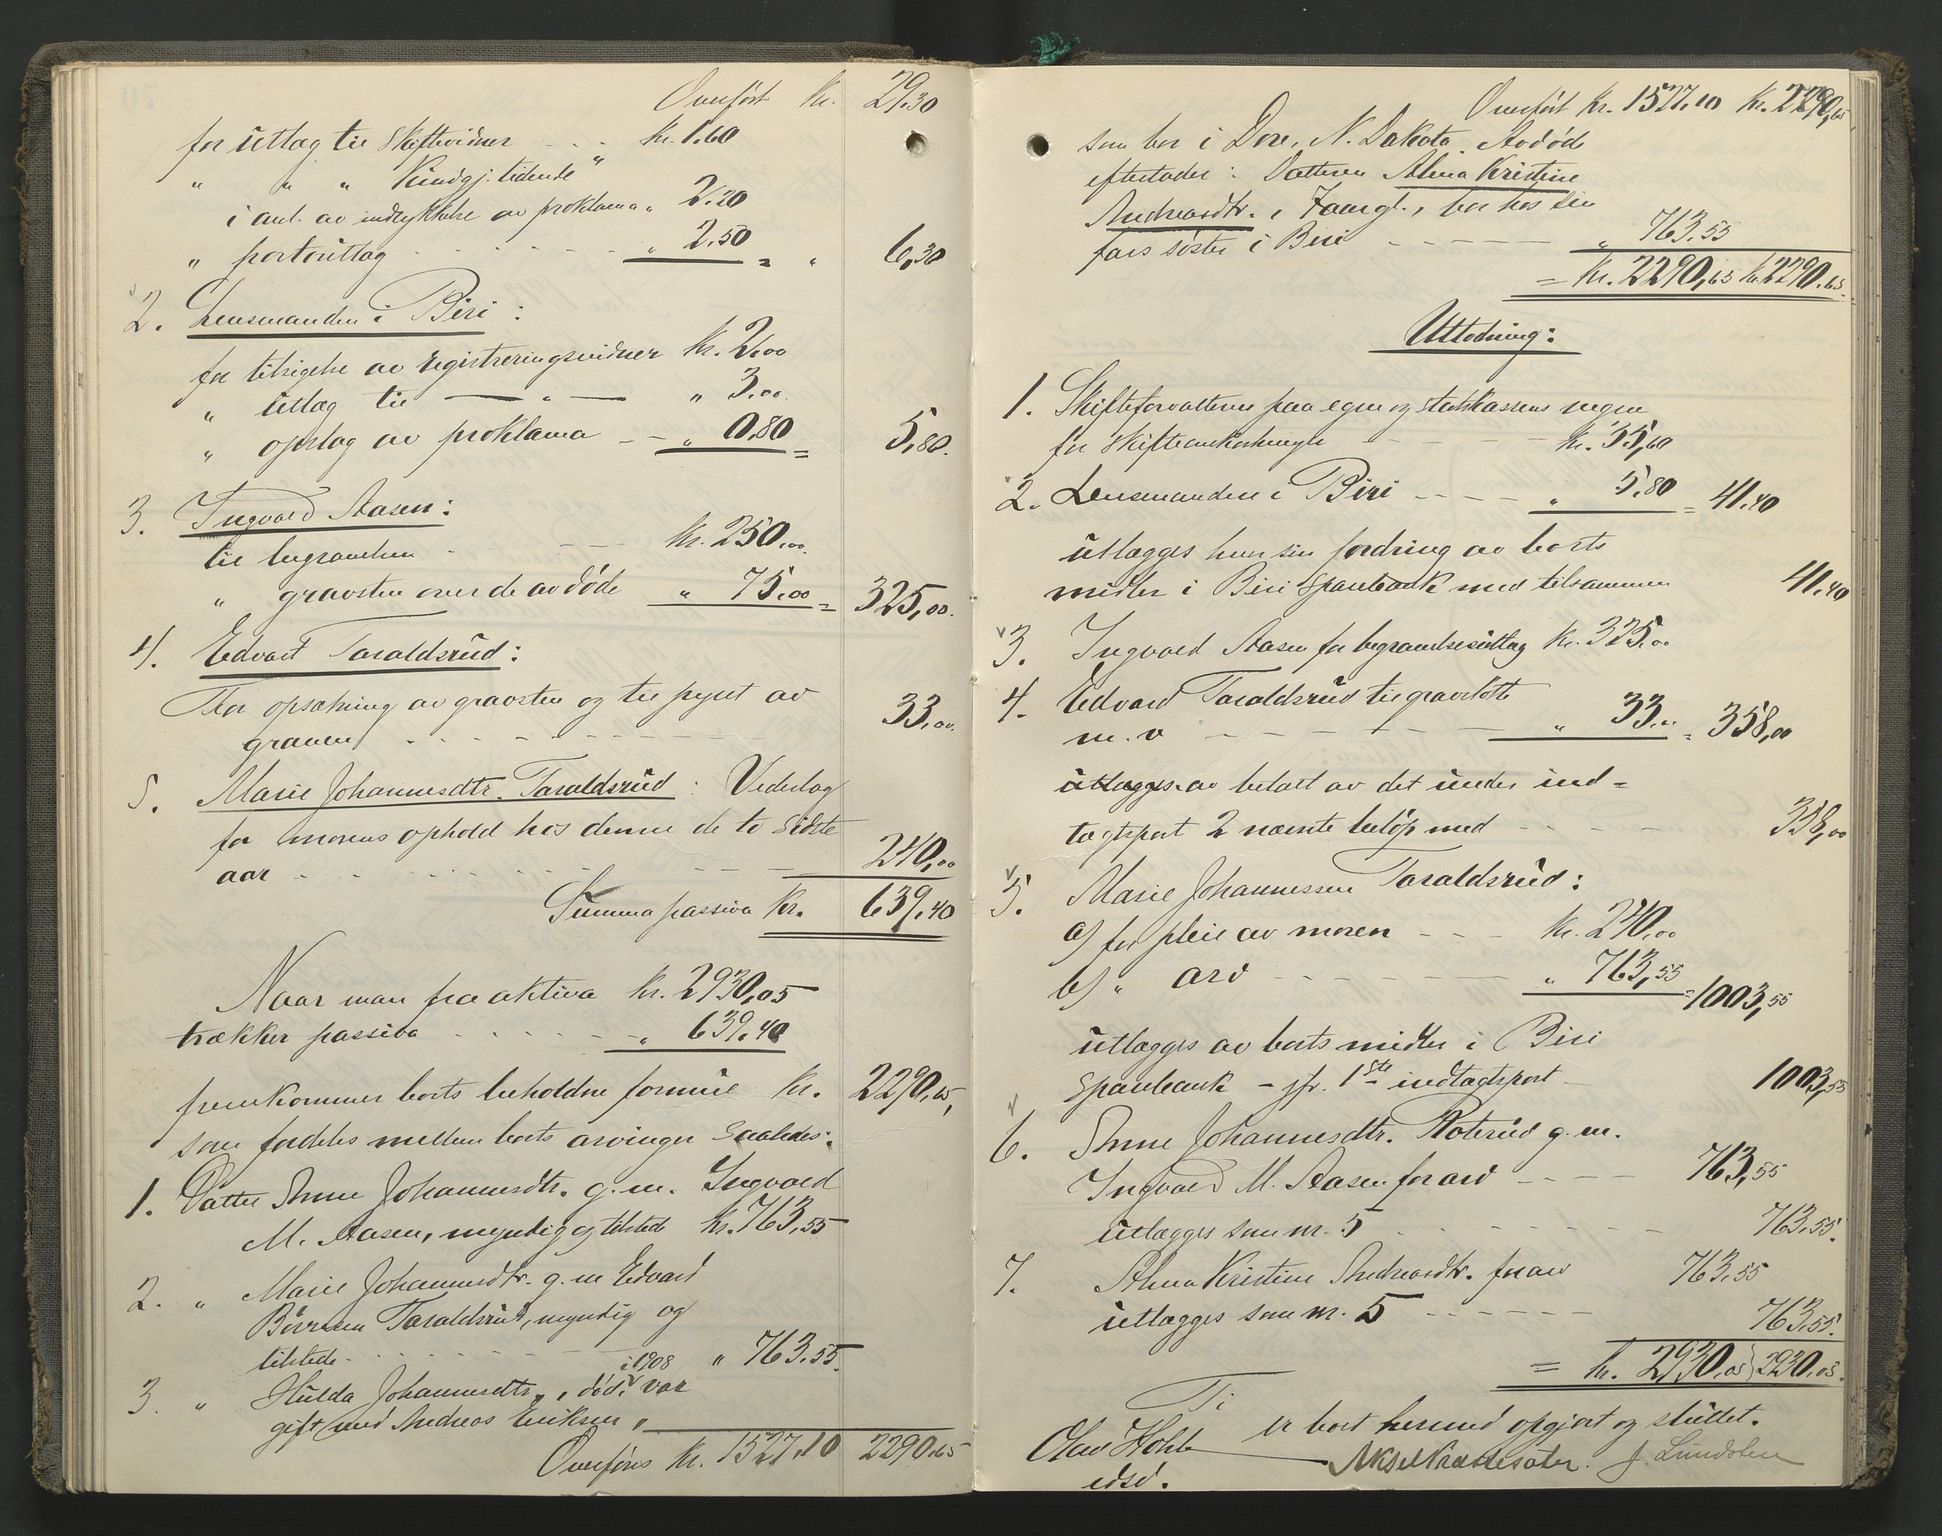 Overført Kr. 29.30
for utlæg til skiftevidner - - - Kr. 1.60
" " " Kundgj. tidende "
i anl. av indrykkelse av proklama " 2.20
" portoutlæg - - - - - " 2.50 = " 6,30
2. Lensmanden i Biri:
for tilsigelse av registreringsvidner Kr. 2,00
" utlæg til — " — " 3,00
" opslag av proklama - - " 0,80 = 5,80.
3. Ingvald Aasen:
til begravelsen - - - Kr. 250,00
" gravsten over de avdøde " 75,00 = 325,00.
4. Edvart Taraldsrud:
For opsætning av gravsten og til pynt av
graven - - - - - 33,00.
5. Marie Johannesdtr. Taraldsrud: Vederlag
for morens ophold hos denne de to sidste
aar - - - - - 240,00
Summa passiva Kr. 639,40
Naar man fra aktiva Kr. 2930,05
trækker passiva - - - - " 639,40
fremkommer boets beholdne formue Kr. 2290,65,
som fordeles mellem boets arvinger saaledes:
1. Datter Anne Johannesdtr. g. m. Ingvald
M. Aasen, myndig og tilstede Kr. 763,55
2. " Marie Johannesdtr. g. m Edvard
Taraldsrud, myndig og
tilstede - - - - - " 763,55.
i 1908
3. " Hulda Johannesdtr., død, var
gift med Andreas Eriksen,
Overføres Kr. 1527,10 2290,65
Overført Kr. 1527,10 Kr. 2290,65
som bor i Dore, N. Dakota. Avdøde
efterlader: Datteren Alma Kristine
Andreasdtr., 7 aar gl., bor hos sin
fars søster i Biri - - - - - " 763,55
= Kr. 2290,65 Kr. 2290,65.
Utlodning:
1. Skifteforvalteren paa egne og statskassens vegne
for skifteomkostninger - - - - Kr. 35,60
2. Lensmanden i Biri - - - - " 5,80 = 41,40
utlægges hver sin fordring av boets
midler i Biri sparebank med tilsammen 41,40
3. Ingvald Aasen for begravelsesutlæg Kr. 325,00
4. Edvard Taraldsrud til gravstøtte
m. v - - - - - " 33,00 = 358,00
utlægges av betalt av det under ind=
tægtspost 2 nævnte beløp med - - - 358,00
5. Marie Johannessen Taraldsrud:
a) for pleie av moren - - - Kr. 240,00
b) " arv - - - - - " 763,55 = 1003,55
utlægges av boets midler i Biri
sparebank - jfr. 1ste indtægtspost - 1003,55
6. Anne Johannesdtr. Roterud g. m.
Ingvald M. Aasen for arv - - - 763,55
utlægges som nr. 5 - - - - - 763,55.
7. Alma Kristine Andreasdtr. for arv 763,55
utlægges som nr. 5 - - - - 763,55.
= Kr. 2930,05 2930,05.
Ti
er boet hermed opgjort og sluttet.
Olav Hohle
edsv.
J. Lundolen